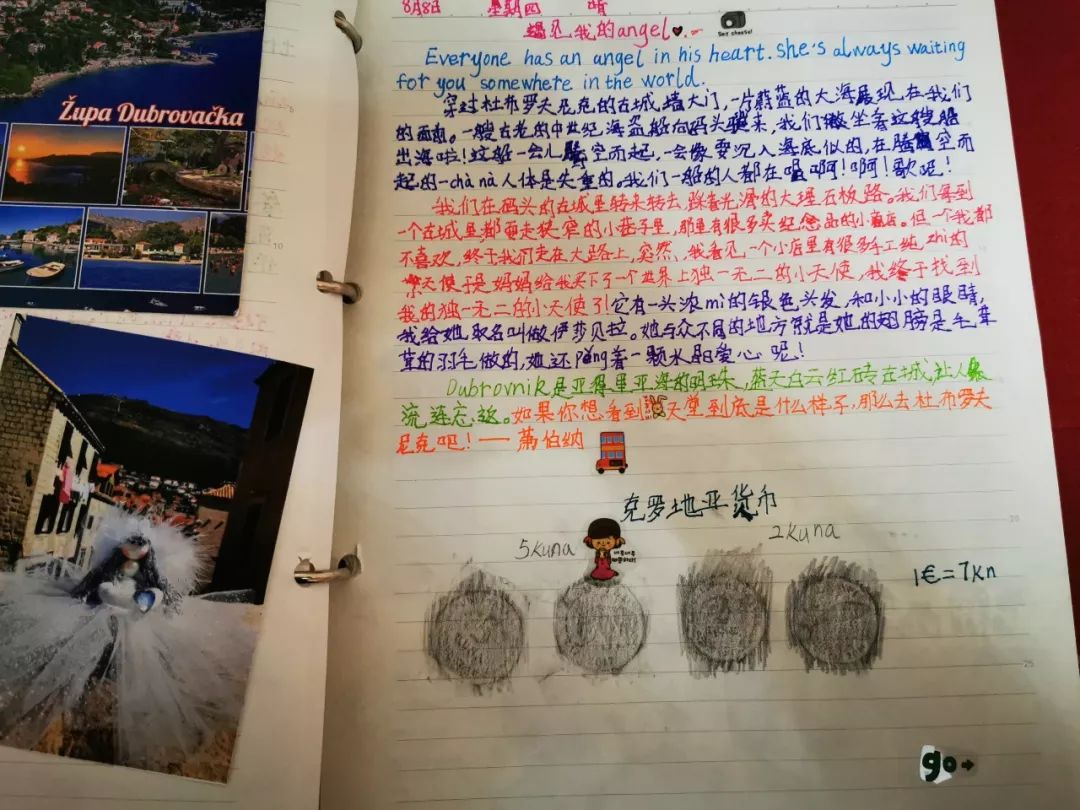 Župa Dubrovačka
8月8日 星期四 晴
遇见我的angel
Say cheese!
Everyone has an angel in his heart. She's always waiting
for you somewhere in the world.
穿过杜布罗夫尼克的古城墙大门,一片蔚蓝的大海展现在我们
的面前。一艘古老的中世纪海盗船向码头驶来,我们坐着这艘船
出海啦!这船一会儿腾空而起,一会像要沉入海底似的,在腾空而
起的一chà nà人体是失重的。我们一船的人都在唱啊!啊!歌呢!
我们在码头的古城里转来转去,踩着光滑的大理石板路。我们每到
一个古城里都要走狭窄的小巷子里,那里有很多卖纪念品的小店。但一个我都
不喜欢,终于我们走在大路上,突然、我看见一个小店里有很多手工纯zhi的
天使于是妈妈给我买下了一个世界上独一无二的小天使,我终于找到
我的独一无二的小天使了!它有一头浓mì的银色头发,和小小的眼睛,
我给她取名叫做伊莎贝拉。她与众不同的地方就是她的翅膀是毛茸
茸的羽毛做的,她还pěng着一颗水晶爱心呢!
Dubrovnik是亚得里亚海的明珠,蓝天白云红砖古城,让人
流连忘返。如果你想看到天堂到底是什么样子,那么去杜布罗夫
尼克吧!——萧伯纳
克罗地亚货币
5kuna
2kuna
1€=7kn
go